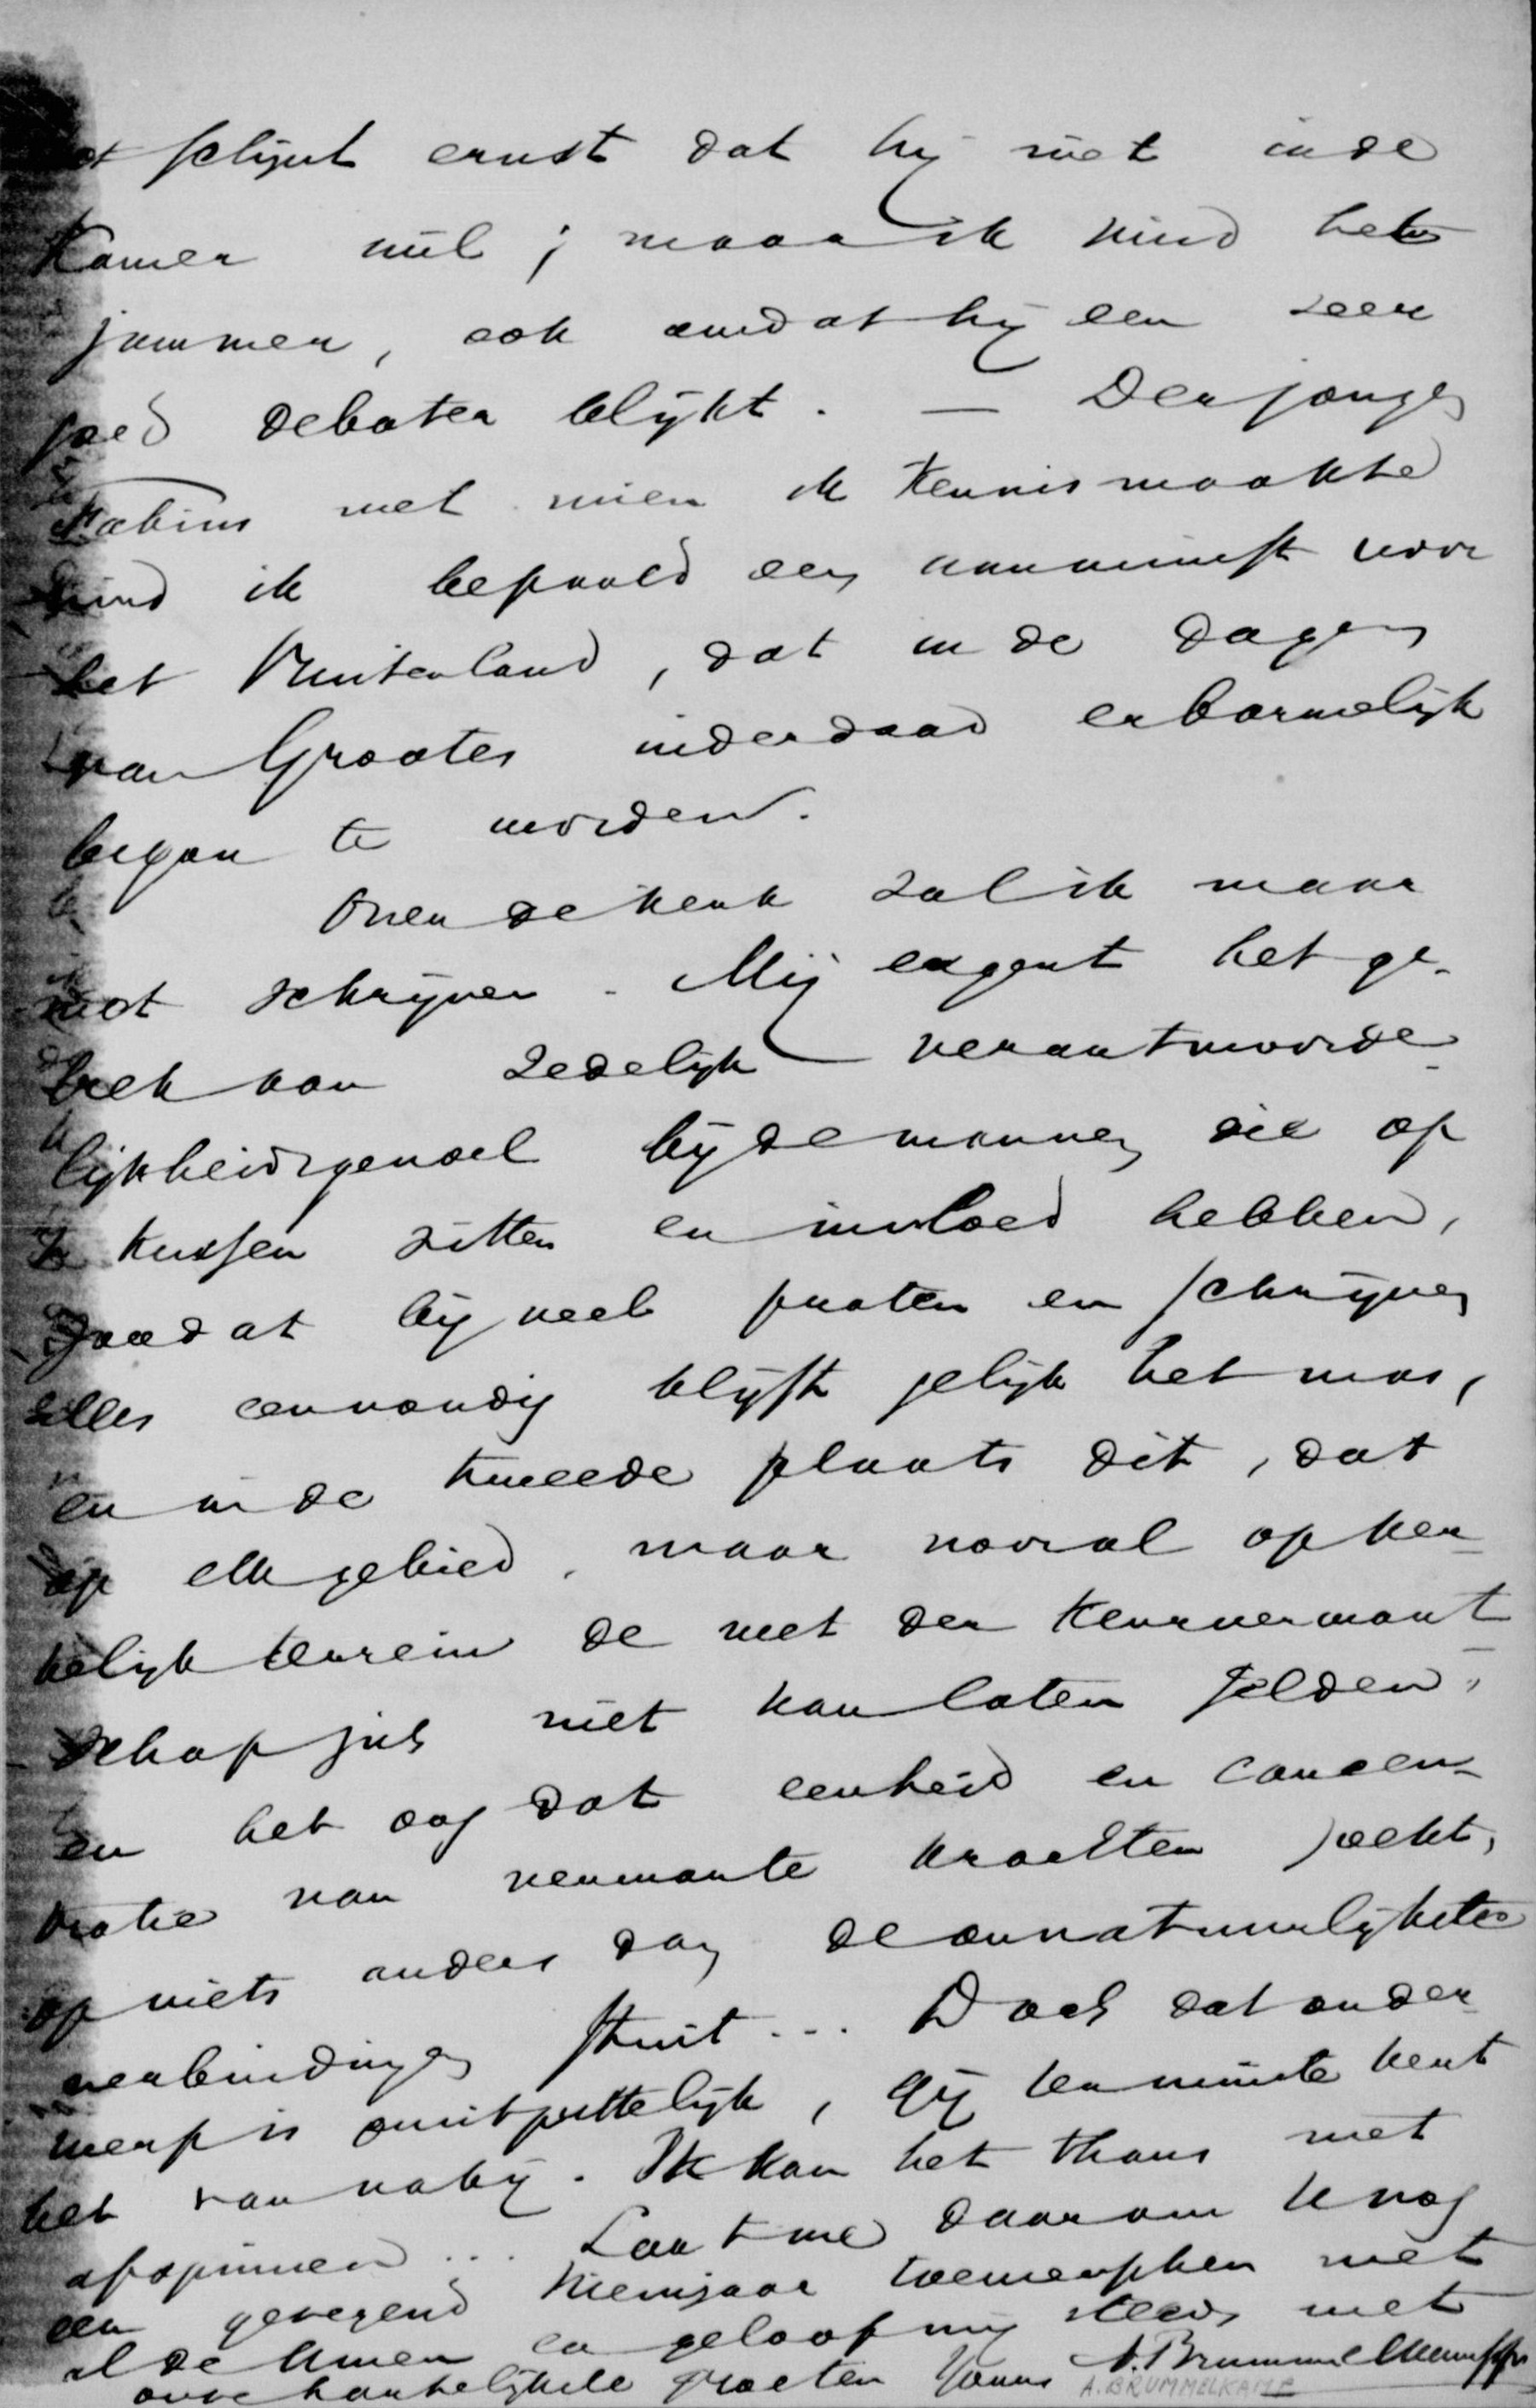 schijnt ernst dat hij niet in de
Kamer wil; maar ik vind het
jammer, ook omdat hij een zeer
goed debater blijkt. — Den jongen
Fabius met wien ik kennis maakte
vind ik bepaald een aanwinst voor
het Buitenland, dat in de dagen
van Grootes inderdaad erbarmelijk
began te worden.
Over de kerk zal ik maar
niet schrijven. Mij ergert het ge-
brek aan zedelijk verantwoorde-
lijkheidsgevoel bij de mannen die op
't kussen zitten en invloed hebben,
zoodat bij veel praten en schrijven
alles eenvoudig blijft gelijk het was,
en in de tweede plaats dit, dat
op elk gebied, maar vooral op ker-
kelijk terrein de wet der keurverwant
schap zich niet kan laten gelden;
en het oog dat eenheid en concen-
tratie van verwante krachten zoekt,
op niets anders dan de onnatuurlijkste
verbindingen stuit... Doch dat onder
werp is onuitputtelijk, gij ten minste kent
het van nabij. Ik kan het thans niet
afspinnen... Laat me daarom U nog
een gezegend Nieuwjaar toewenschen met
al de Uwen en geloof mij steeds met
onze hartelijkste groeten Yours A. Brummelkamp
A. BRUMMELKAMP